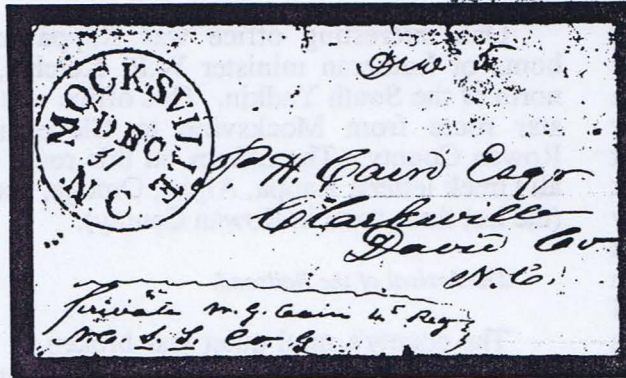 Due 5
MOCKSVILLE
DEC 11
N C
P. H. Cain Esqr
Clarksville
Davie Co
N.C.
private M. G. Cain 4th Reg
N.C S. S. Co. G